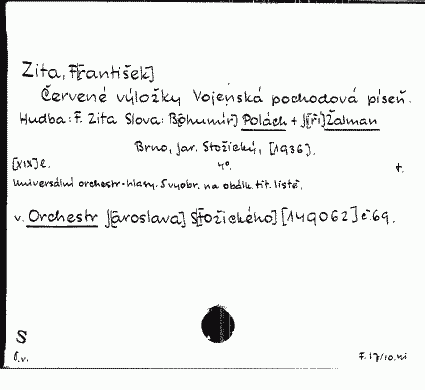 Zita, F[rantišek]
Červené výložky Vojenská pochodová píseň.
Hudba: F. Zita Slova: B[ohumír] Polách + J[iří] Žalman
Brno, Jar. Stožický, [1936].
[XIX] c. 4°. t.
Universální orchestr-hlasy. S vyobr. na obálk. tit. listě.
v. Orchestr J[aroslava] S[tožického] [149062] č. 69.
S
F. 17/10.